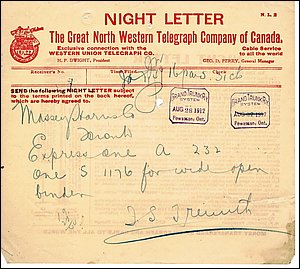 NIGHT LETTER
N L B
The Great North Western Telegraph Company of Canada.
Exclusive connection with the
WESTERN UNION TELEGRAPH CO.
Cable Service
to all the world
H. P. DWIGHT, President
GEO. D. PERRY, General Manager
Receiver's No.
Time Filed
Check
16 paid
SEND the following NIGHT LETTER subject
to the terms printed on the back hereof,
which are hereby agreed to.
GRAND TRUNK RY
SYSTEM
AUG 28 1912
Powassan, Ont.
GRAND TRUNK RY
SYSTEM
AUG 28 1912
Powassan, Ont.
Massey Harris Co
Toronto
Express one A 232
one S 1176 for wide open
binder